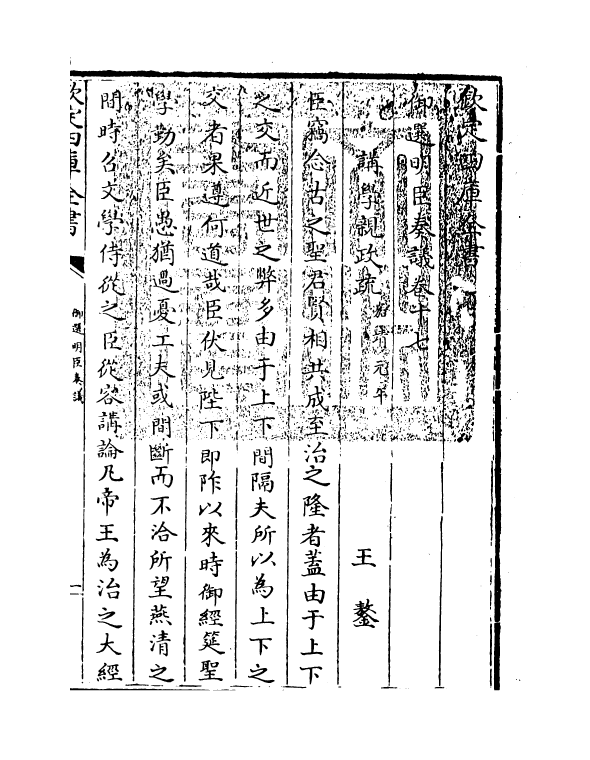 欽定四庫全書
御選明臣奏議卷十七
講學親政疏嘉靖元年
王鏊
臣竊念古之聖君賢相共成至治之隆者蓋由于上下
之交而近世之弊多由于上下間隔夫所以為上下之
交者果遵何道哉臣伏見陛下即阼以來時御經筵聖
學勤矣臣愚猶過憂工夫或間斷而不洽所望燕清之
間時召文學侍從之臣從容講論凡帝王為治之大經
欽定四庫全書
御選明臣奏議
一